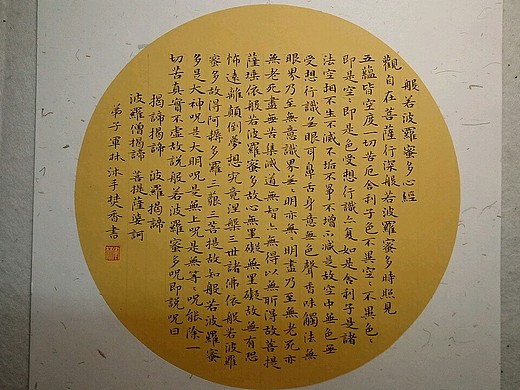 般若波羅蜜多心經
觀自在菩薩行深般若波羅蜜多時照見
五蘊皆空度一切苦厄舍利子色不異空〻不異色〻
即是空〻即是色受想行識亦復如是舍利子是諸
法空相不生不滅不垢不淨不增不減是故空中無色無
受想行識無眼耳鼻舌身意無色聲香味觸法無
眼界乃至無意識界無明亦無〻明盡乃至無老死亦
無老死盡無苦集滅道無智亦無得以無所得故菩提
薩埵依般若波羅蜜多故心無罣礙無罣礙故無有恐
怖遠離顛倒夢想究竟涅槃三世諸佛依般若波羅
蜜多故得阿耨多羅三藐三菩提故知般若波羅蜜
多是大神呪是大明呪是無上呪是無等〻呪能除一
切苦真實不虛故說般若波羅蜜多呪即說呪曰
揭諦揭諦 波羅揭諦
波羅僧揭諦 菩提薩婆訶
弟子軍林沐手焚香書